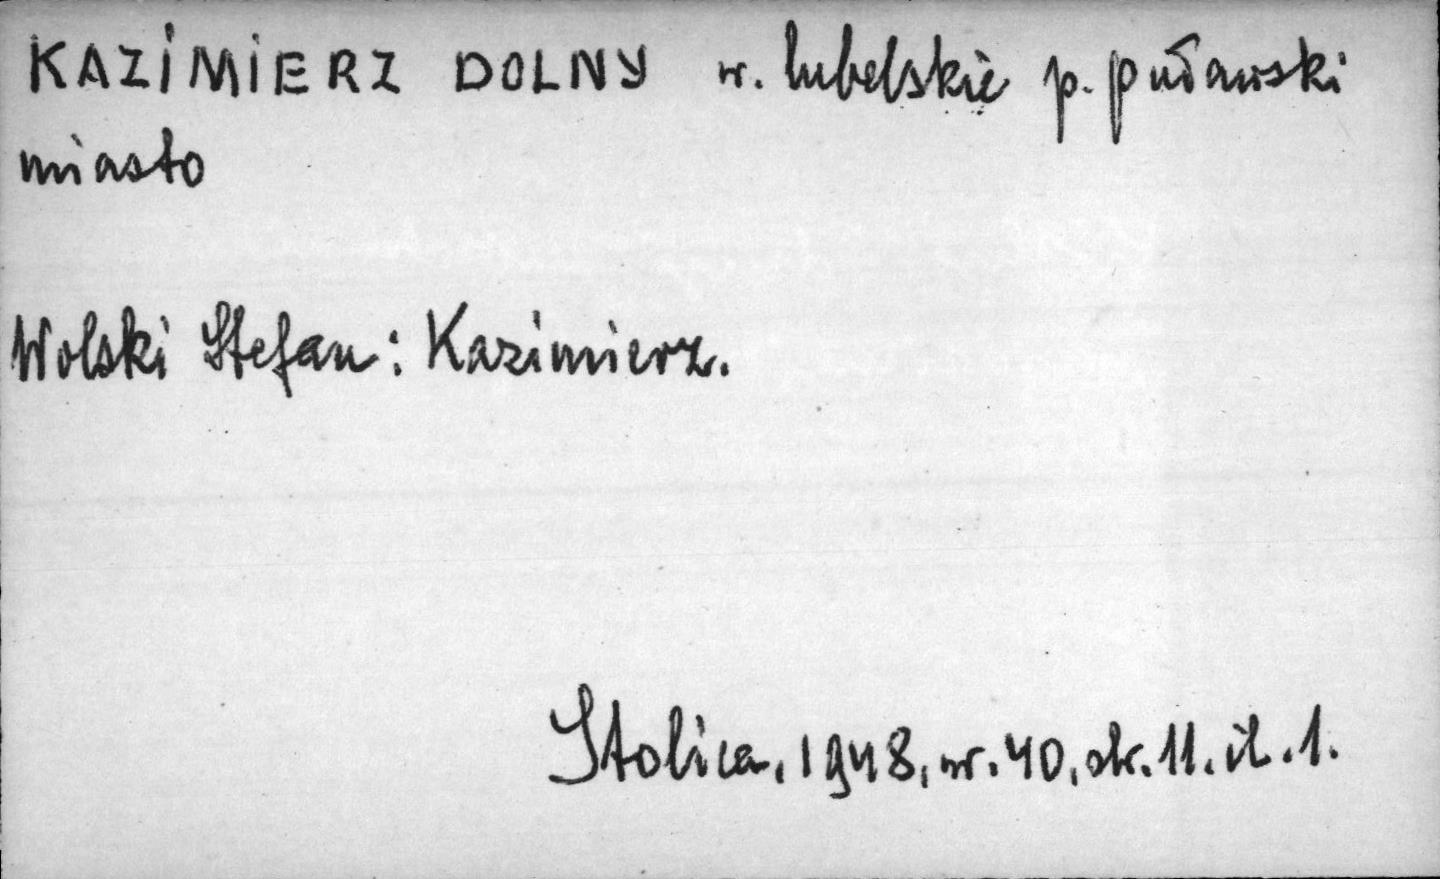 KAZIMIERZ DOLNY w. lubelskie p. puławski
miasto
Wolski Stefan: Kazimierz.
Stolica, 1948, nr. 40, str. 11. il. 1.